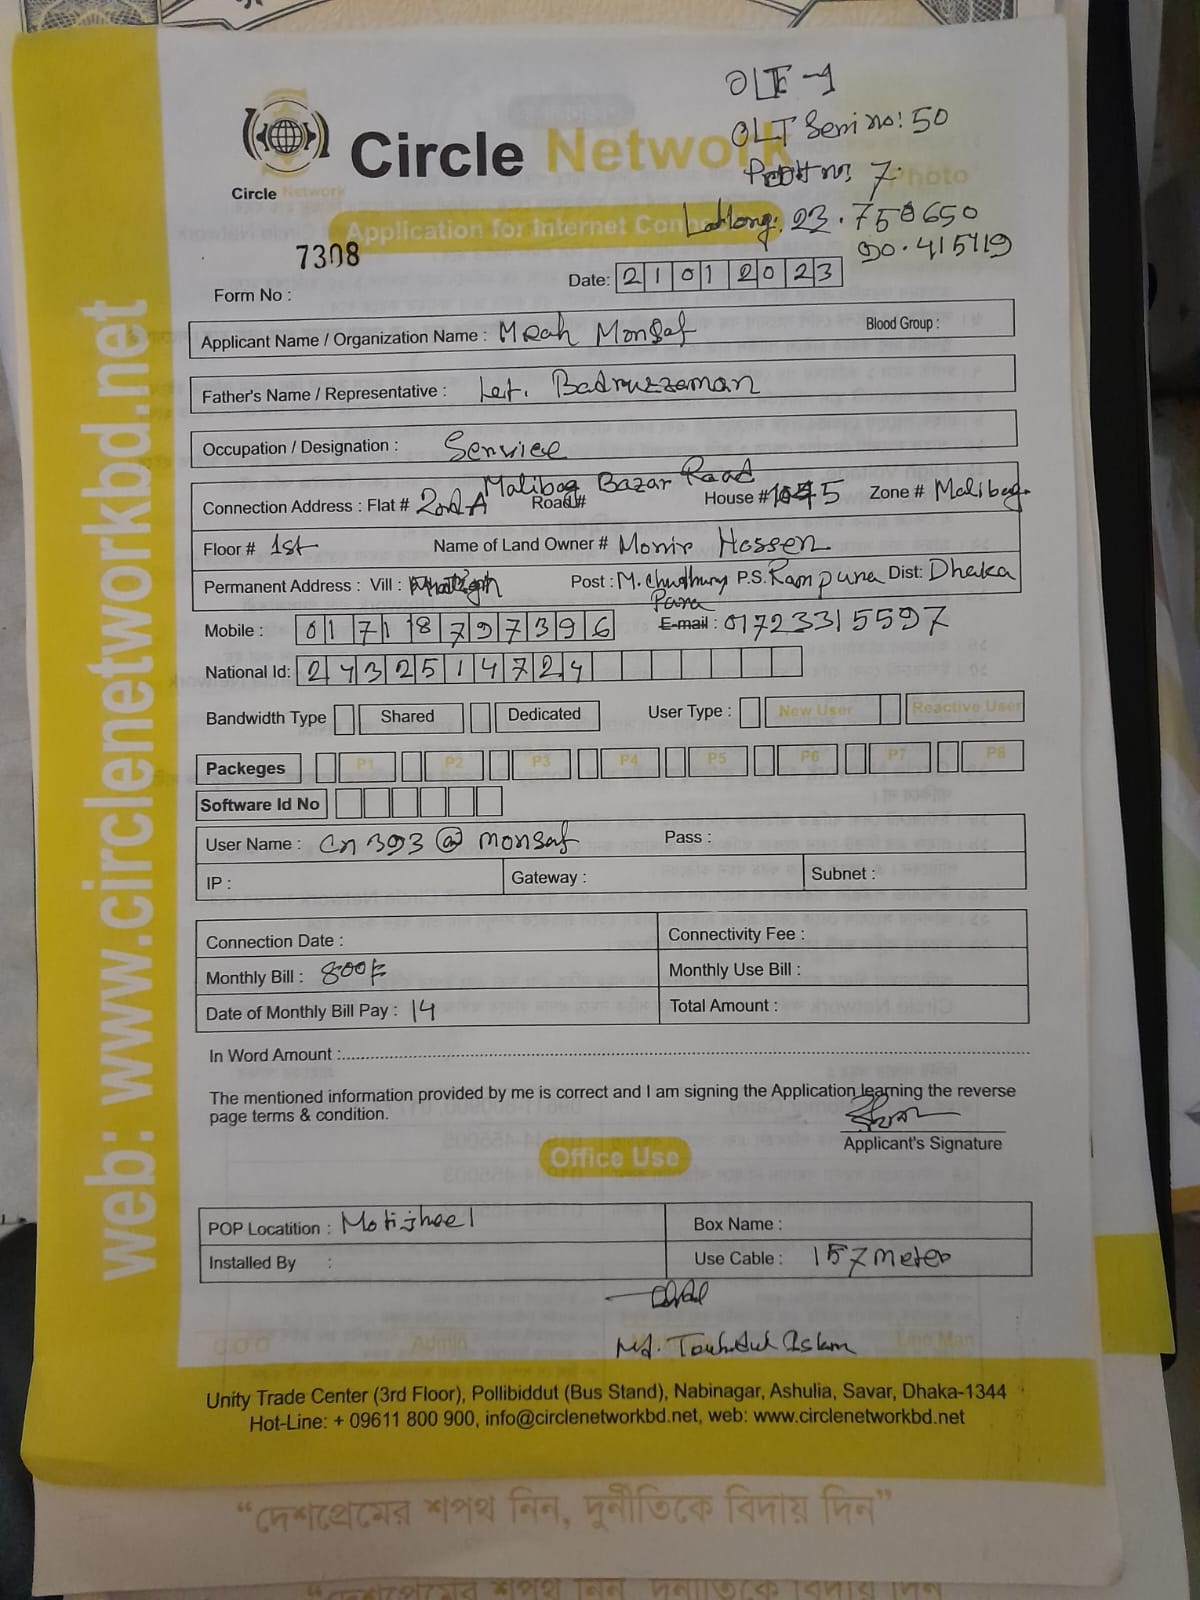 OLT-1
OLT Serri no: 50
Port no: 7
Lat long: 23.750650
90.415419
Circle Network
Circle Network
Photo
Application for Internet Connection
7308
Form No :
Date: 21012023
Applicant Name / Organization Name : Mrah Monsaf
Blood Group :
Father's Name / Representative : Let. Badruzzaman
Occupation / Designation : Service
Malibag Bazar Road
Connection Address : Flat # 2nd-A Road # House # 5 Zone # Malibag
Floor # 1st Name of Land Owner # Monir Hossen
Permanent Address : Vill : Post : M. Chudhury Para P.S. Rampura Dist: Dhaka
Mobile : 01718797396 E-mail : 01723315597
National Id: 2432514724
Bandwidth Type Shared Dedicated User Type : New User Reactive User
Packeges P1 P2 P3 P4 P5 P6 P7 P8
Software Id No
User Name : Cn393@monsaf Pass :
IP : Gateway : Subnet :
Connection Date : Connectivity Fee :
Monthly Bill : 800/= Monthly Use Bill :
Date of Monthly Bill Pay : 14 Total Amount :
In Word Amount :
The mentioned information provided by me is correct and I am signing the Application learning the reverse
page terms & condition.
Applicant's Signature
Office Use
POP Locatition : Motijheel Box Name :
Installed By : Use Cable : 157 meter
Md. Touhidul Islam
Unity Trade Center (3rd Floor), Pollibiddut (Bus Stand), Nabinagar, Ashulia, Savar, Dhaka-1344
Hot-Line: + 09611 800 900, info@circlenetworkbd.net, web: www.circlenetworkbd.net
web: www.circlenetworkbd.net
“দেশপ্রেমের শপথ নিন, দুর্নীতিকে বিদায় দিন”
“দেশপ্রেমের শপথ নিন, দুর্নীতিকে বিদায় দিন